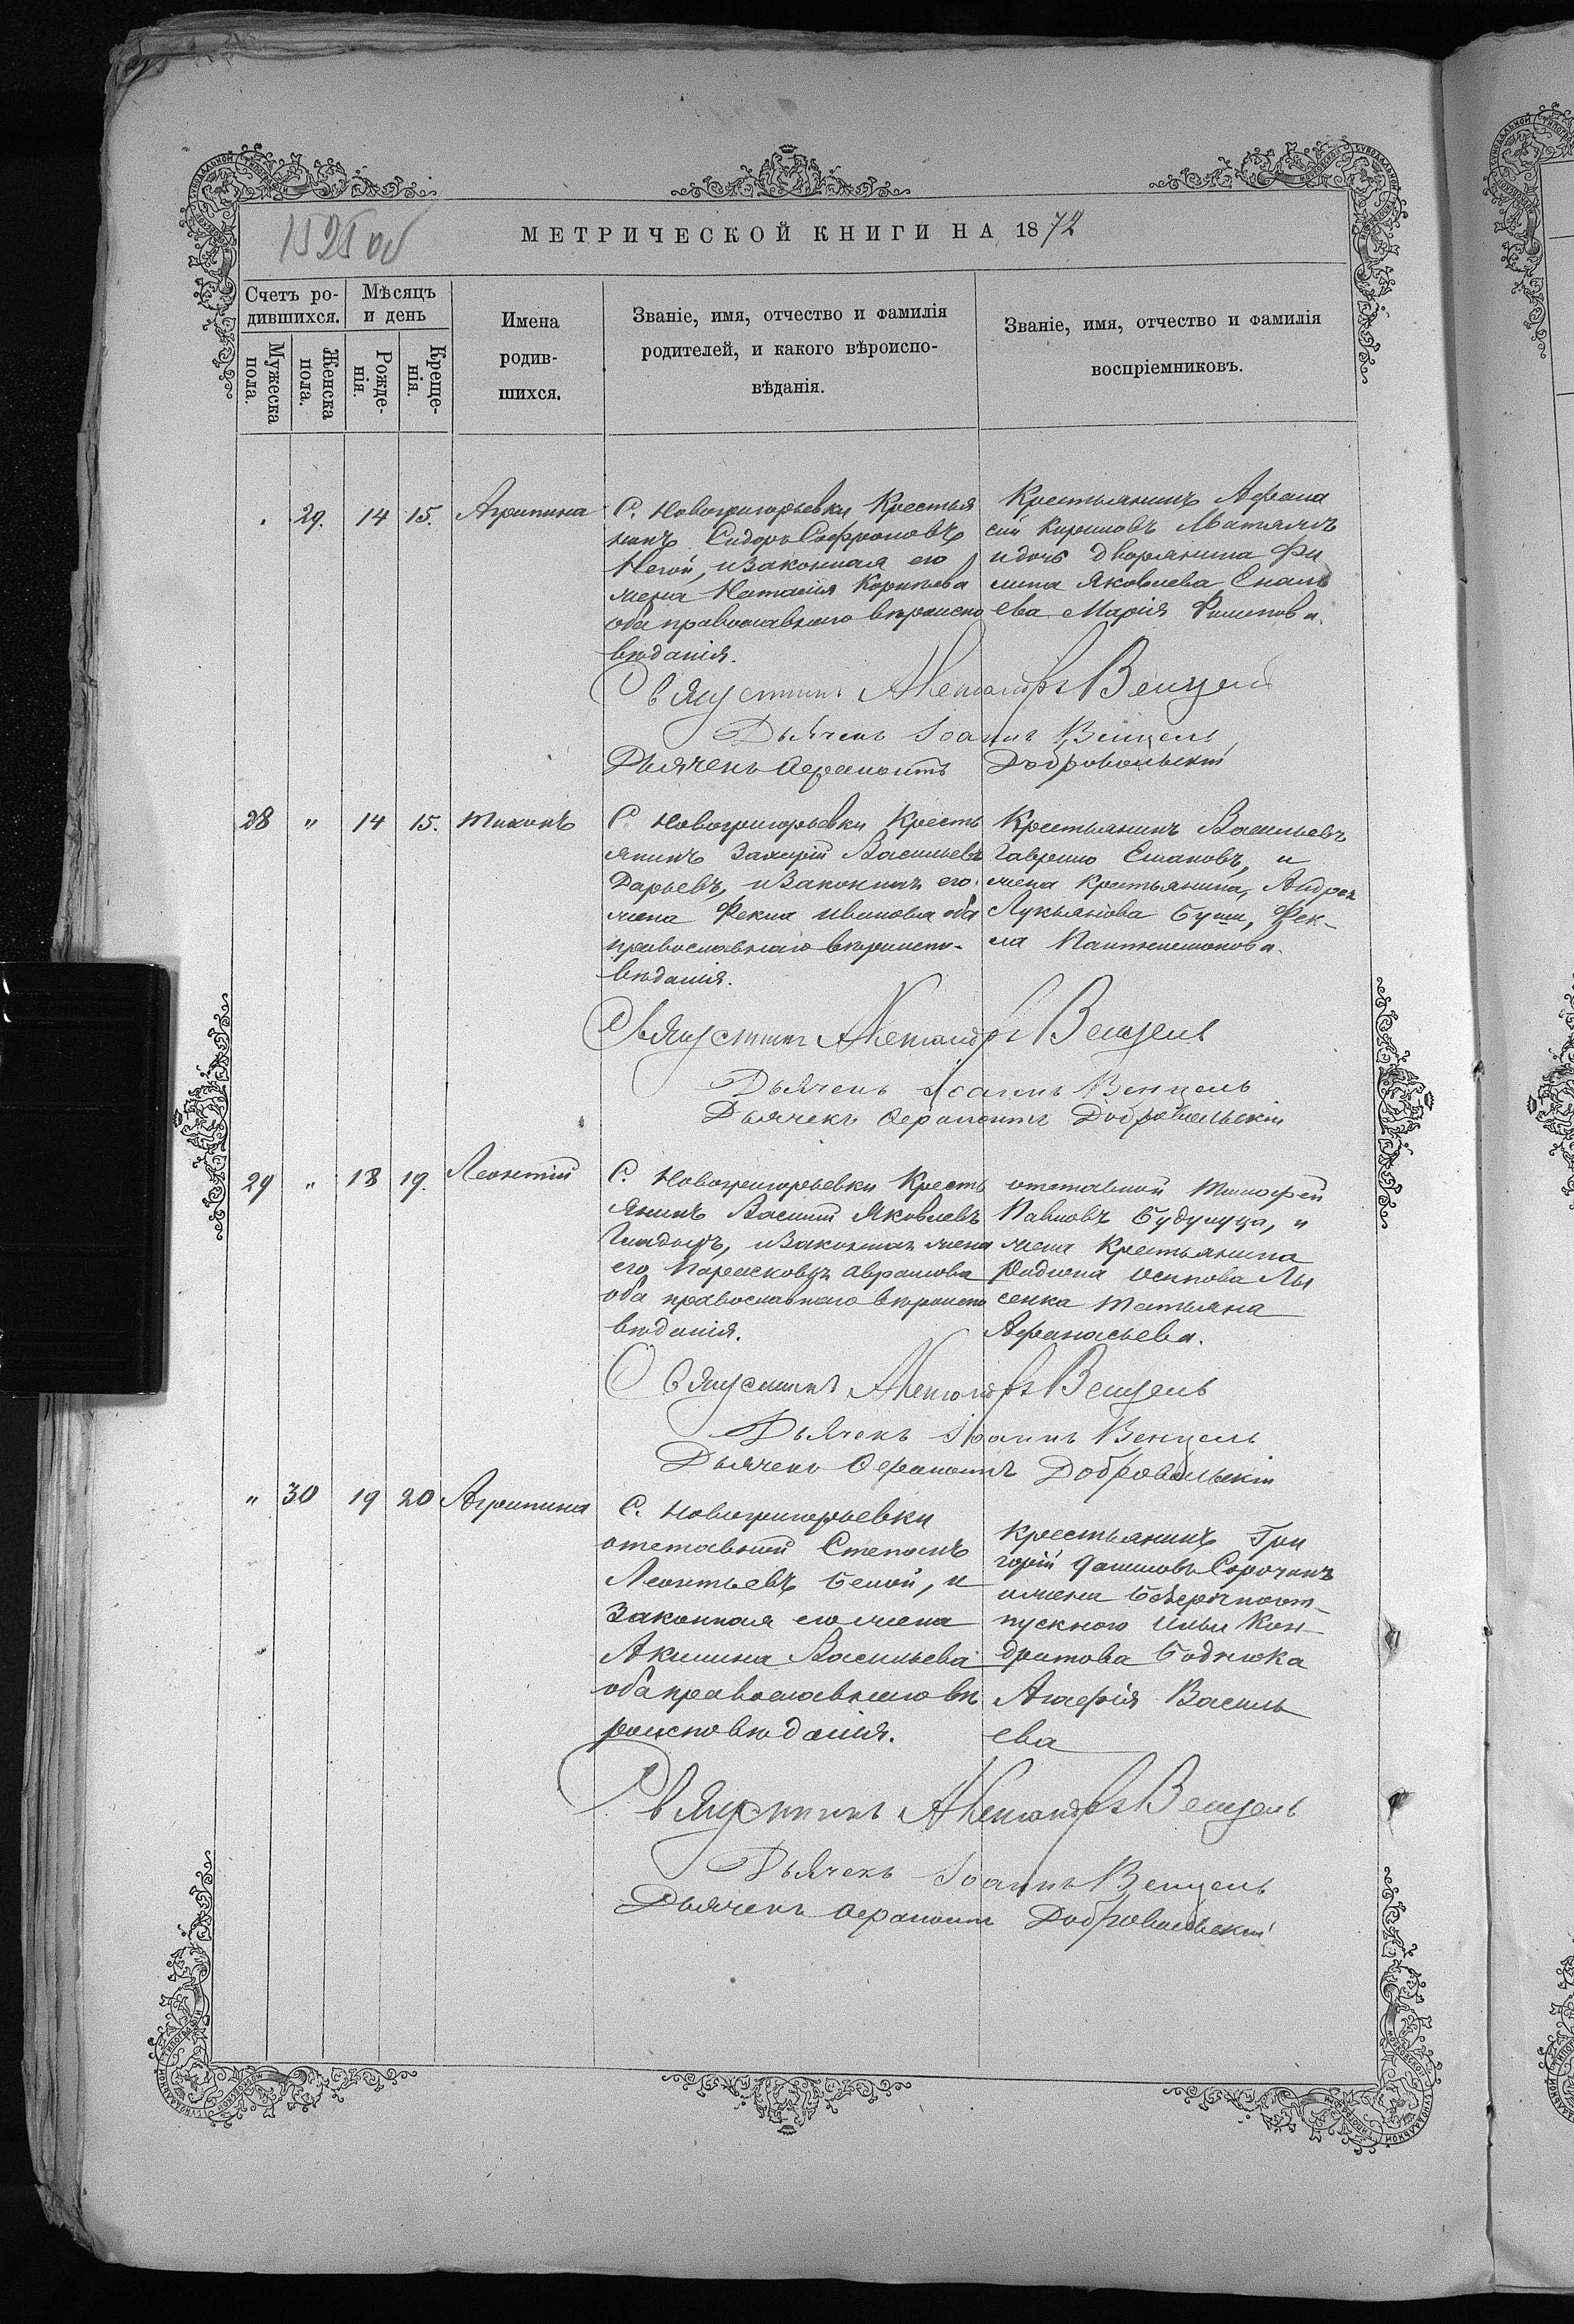 1525 об
МЕТРИЧЕСКОЙ КНИГИ НА 1872
Счетъ ро-
дившихся.
Мѣсяцъ
и день
Мужеска
пола.
Женска
пола.
Рожде-
нія.
Креще-
нія.
Имена
родив-
шихся.
Званіе, имя, отчество и фамилія
родителей, и какого вѣроиспо-
вѣданія.
Званіе, имя, отчество и фамилія
воспріемниковъ.
29. 14 15. Агрипина
С. Новогригорьевки Крестья
нинъ Сидоръ Софроновъ
Негой, изаконная его
жена Наталия
оба православнаго вѣроиспо
вѣданія.
Крестьянинъ Афана
сій Кириловъ
и дочь дворянина Фи
липа Яковлева
ева Марія Филипова.
Священникъ Александръ Венцель
Дьячекъ Іоаннъ Венцель
Дьячекъ Ферапонтъ Добровольскій
28 " 14 15. Тихонъ
С. Новогригорьевки Кресть
янинъ Захарій Васильевъ
Дарьевъ, изаконная его
жена Фекла Иванова оба
православнаго вѣроиспо-
вѣданія.
Крестьянинъ Васильевъ
Гаврило и
жена крестьянина, Андрея
Лукьянова Фек-
ла Пантелемонова.
Священникъ Александръ Венцель
Дьячекъ Іоаннъ Венцель
Дьячекъ Ферапонтъ Добровольскій
29 " 18 19. Леонтій
С. Новогригорьевки Кресть
янинъ Василій Яковлевъ
Гладырь, изаконная жена
его Параскова Аврамова
оба православнаго вѣроиспо
вѣданія.
отставной Тимофей
Павловъ и
жена Крестьянина
Родиона Осипова Лы
сенка Татьяна
Афанасьева.
Священникъ Александръ Венцель
Дьячекъ Іоаннъ Венцель
Дьячекъ Ферапонтъ Добровольскій
" 30 19 20 Агрипина
С. Новогригорьевки
отставной Степанъ
Леонтьевъ Белой, и
Законная его жена
Акилина Васильева
оба православнаго вѣ
роисповѣданія.
Крестьянинъ Гри
горій Даниловъ Сорочанъ
ижена безсрочноот-
пускного Ильи Кон-
дратова Боднюка
Агафія Василь
ева
Священникъ Александръ Венцель
Дьячекъ Іоаннъ Венцель
Дьячекъ Ферапонтъ Добровольскій